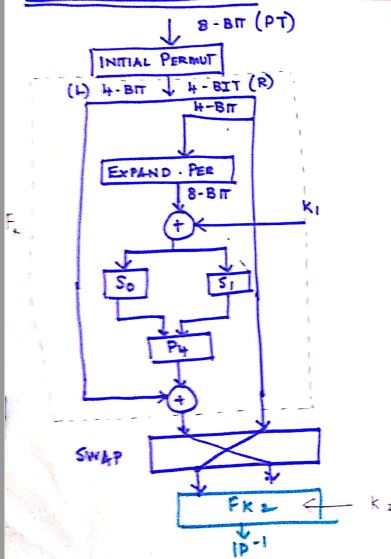 8-BIT (PT)
INITIAL PERMUT
(L) 4-BIT 4-BIT (R)
4-BIT
EXPAND. PER
8-BIT
+
K1
S0
S1
P4
+
SWAP
FK2
K2
IP-1